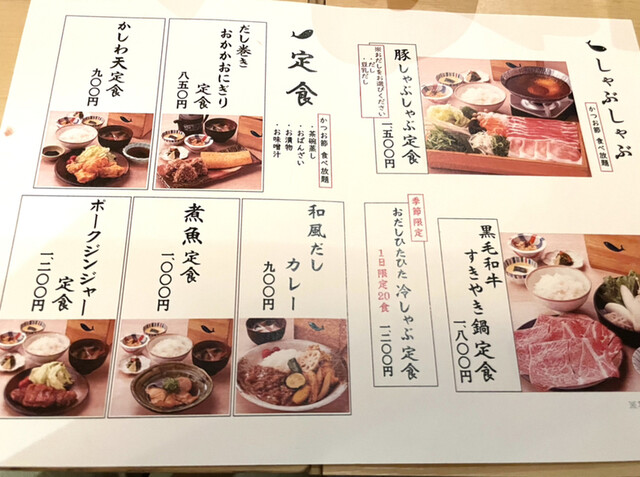 しゃぶしゃぶ
かつお節 食べ放題
豚しゃぶしゃぶ定食
一、五〇〇円
※おだしをお選びください
・だし
・豆乳だし
黒毛和牛
すきやき鍋定食
一、八〇〇円
季節限定
おだしひたひた 冷しゃぶ定食
1日限定20食
一、二〇〇円
定食
かつお節 食べ放題
・茶碗蒸し
・おばんざい
・お漬物
・お味噌汁
だし巻き
おかかおにぎり
定食
八五〇円
かしわ天定食
九〇〇円
和風だし
カレー
九〇〇円
煮魚定食
一、〇〇〇円
ポークジンジャー
定食
一、二〇〇円